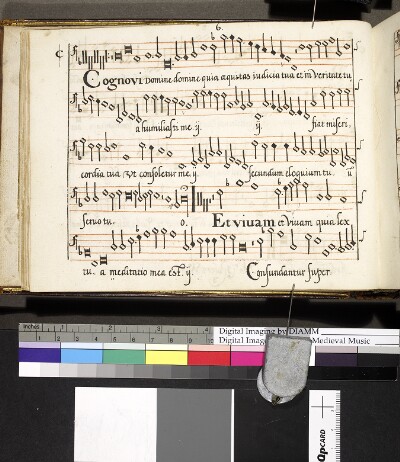 6.
Cognovi Domine domine quia æquitas iudicia tua et in veritate tu
a humiliasti me. ij. ij. fiat miseri
cordia tua ut consoletur me. ij. secundum eloquium tu. u
servo tu. o. Et vivam et vivam quia lex
tu. a meditatio mea est. ij. Confundantur super
inches 1 2 3 4
cm 1 2 3 4 5 6 7 8 9 10
Digital Imaging by DIAMM
Digital Imag Medieval Music
QPCARD